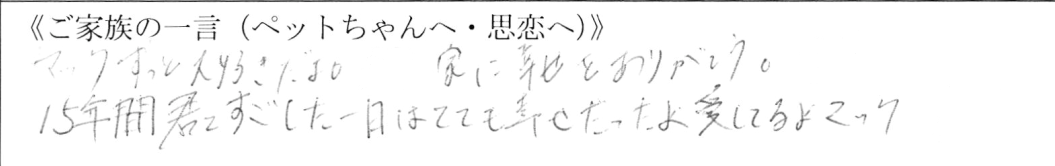 《ご家族の一言（ペットちゃんへ・思恋へ）》
マックずっと大好きだよ。 家に幸せをありがとう。
15年間君とすごした一日はとても幸せだったよ愛してるよマック